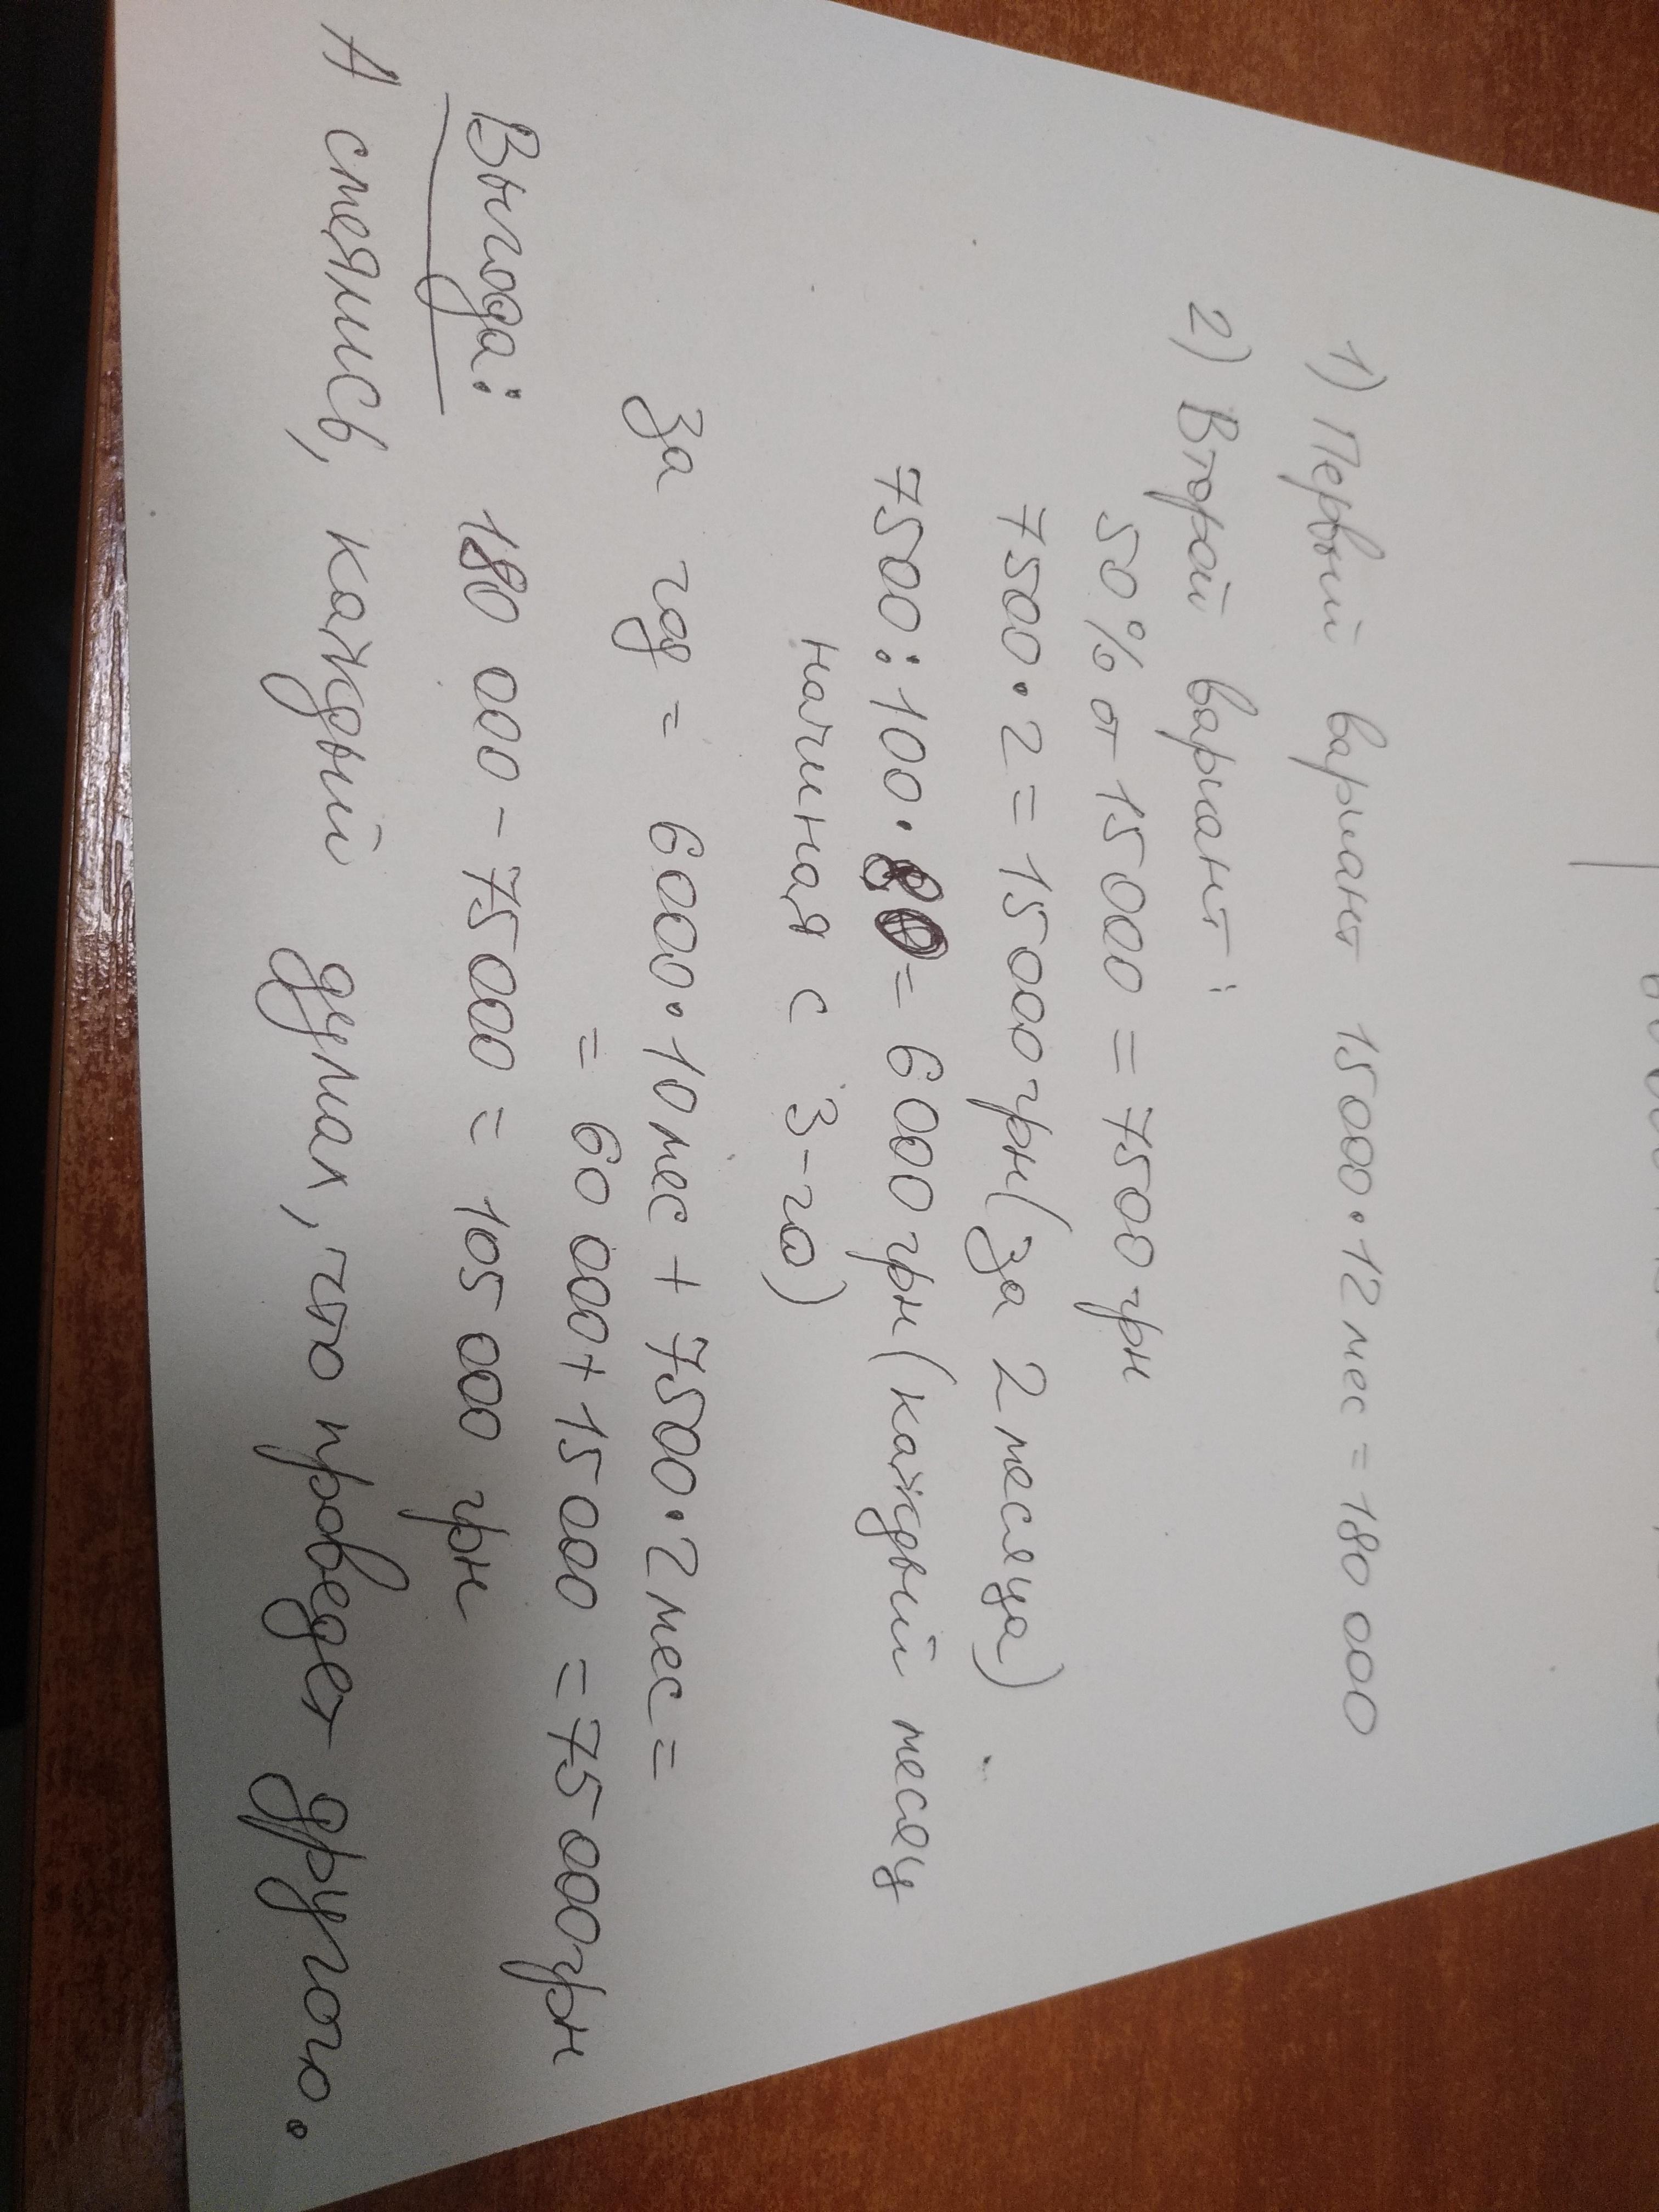 1) Первый вариант 15000·12 мес = 180 000
2) Второй вариант:
50% от 15000 = 7500 грн
7500·2 = 15000 грн (за 2 месяца)
7500:100·80 = 6000 грн (каждый месяц
начиная с 3-го)
За год = 6000·10 мес + 7500·2 мес =
= 60 000 + 15 000 = 75 000 грн
Выгода: 180 000 - 75 000 = 105 000 грн
А смеялись, каждый думал, что проведет другого.